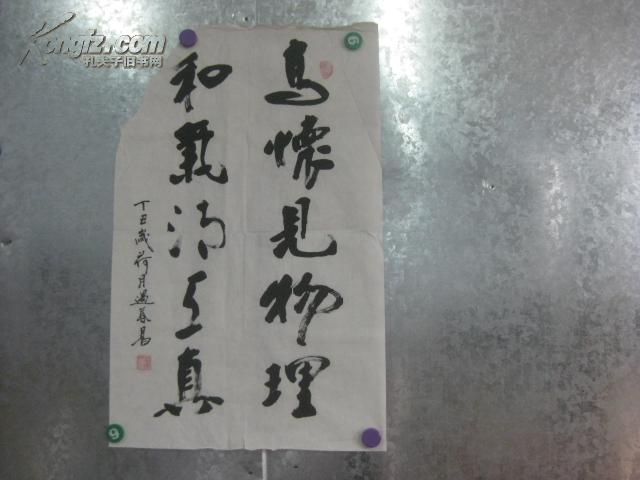 Kongfz.com
孔夫子旧书网
高懷見物理
和氣得天真
丁丑歲荷月